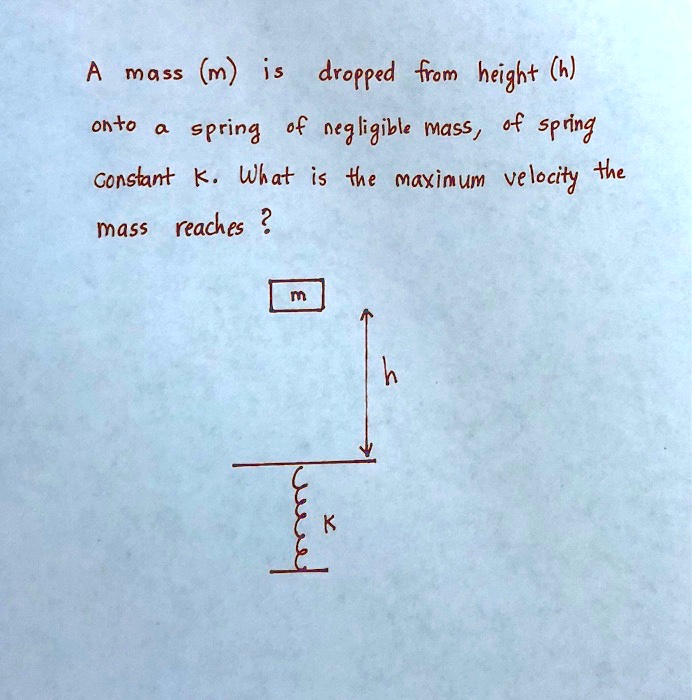 A mass (m) is dropped from height (h)
onto a spring of negligible mass, of spring
constant K. What is the maximum velocity the
mass reaches ?
m
h
K